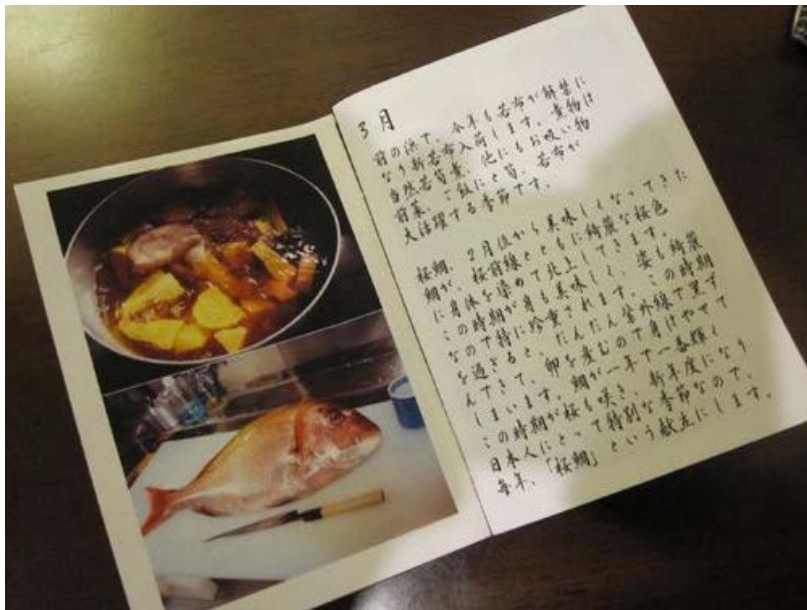 3月
前の浜で、今年も若布が解禁に
なり新若布入荷します。煮物は
当然若筍煮、他にもお吸い物
前菜、ご飯にと筍、若布が
大活躍する季節です。
桜鯛、2月位から美味しくなってきた
鯛が、桜前線とともに綺麗な桜色
に身体を染めて北上してきます。
この時期が身も美味しく、姿も綺麗
なので特に珍重されます。この時期
を過ぎると、だんだん紫外線で黒ず
んできて、卵を産むので身はやせて
しまいます。鯛が一年で一番輝く
この時期が桜も咲き、新年度になり
日本人にとって特別な季節なので、
毎年、「桜鯛」という献立にします。